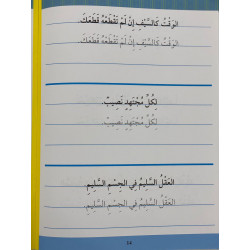 الوَقْتُ كَالسَّيْفِ إِنْ لَمْ تَقْطَعْهُ قَطَعَكَ.
الوَقْتُ كَالسَّيْفِ إِنْ لَمْ تَقْطَعْهُ قَطَعَكَ.
لِكُلِّ مُجْتَهِدٍ نَصِيبٌ.
لِكُلِّ مُجْتَهِدٍ نَصِيبٌ.
العَقْلُ السَّلِيمُ فِي الجِسْمِ السَّلِيمِ
العَقْلُ السَّلِيمُ فِي الجِسْمِ السَّلِيمِ